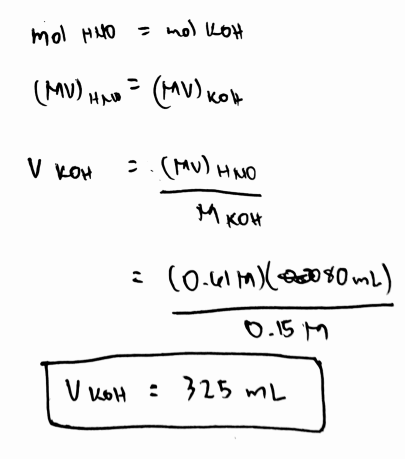 mol HNO = mol KOH
(MV) HNO = (MV) KOH
V KOH = (MV) HNO
M KOH
= (0.61 M)(80 mL)
0.15 M
V KOH = 325 mL